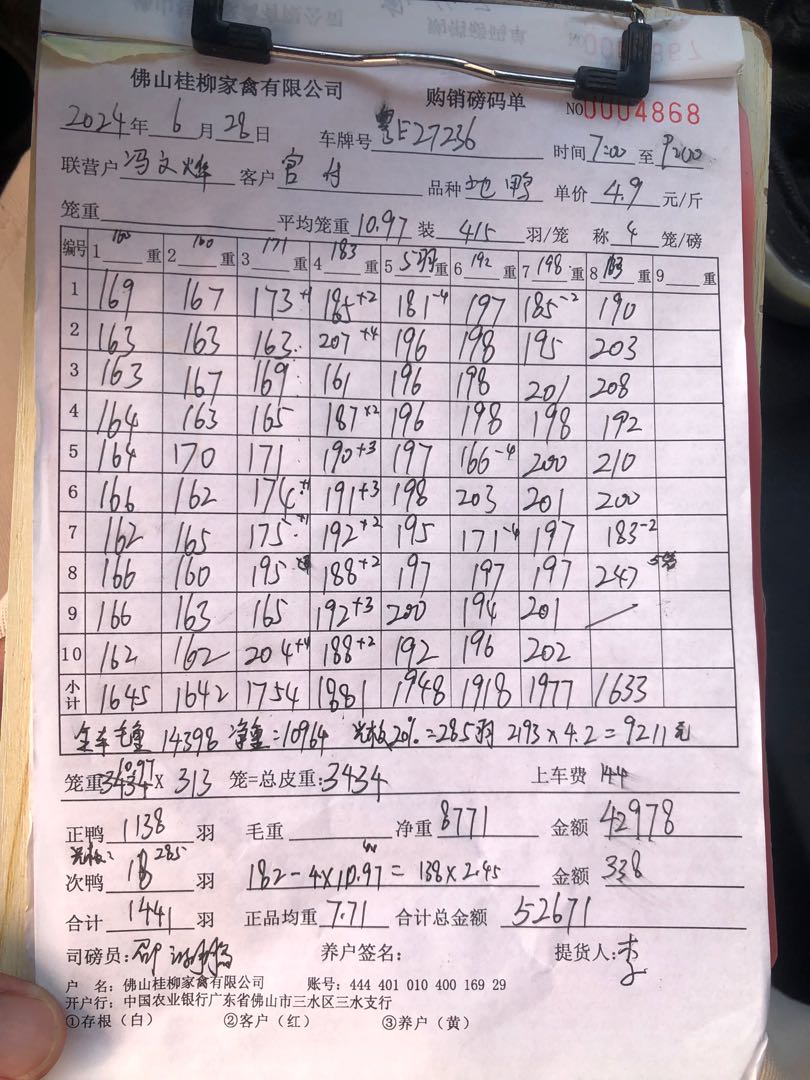 佛山桂柳家禽有限公司 购销磅码单 NO0004868
2024年 6月 28日 车牌号 粤E27236 时间 7:00 至 9:00
联营户 冯文烽 客户 官付 品种 北鸭 单价 4.9 元/斤
笼重 平均笼重 10.97 装 4/5 羽/笼 称 4 笼/磅
编号 1 160 重 2 160 重 3 171 重 4 183 重 5 5羽 重 6 192 重 7 198 重 8 183 重 9 重
1 169 167 173+1 185+2 181-4 197 185-2 190
2 163 163 163 207+4 196 198 195 203
3 163 167 169 161 196 198 201 208
4 164 163 165 187+2 196 198 198 192
5 164 170 171 190+3 197 166-4 200 210
6 166 162 174+1 191+3 198 203 201 200
7 162 165 175+1 192+2 195 171-4 197 183-2
8 166 160 195 188+2 197 197 197 247 5笼
9 166 163 165 192+3 200 194 201
10 162 162 204+4 188+2 192 196 202
小计 1645 1642 1754 1881 1948 1918 1977 1633
全车毛重 14398 净重=10964 光板20%=285羽 2193×4.2=9211元
笼重 10.97 × 313 笼=总皮重:3434 上车费 144
正鸭 1138 羽 毛重 净重 8771 金额 42978
光板: 285
次鸭 18 羽 182-4×10.97=138×2.45 金额 338
合计 1441 羽 正品均重 7.71 合计总金额 52671
司磅员: 养户签名: 提货人:李
户 名:佛山桂柳家禽有限公司 账号:444 401 010 400 169 29
开户行:中国农业银行广东省佛山市三水区三水支行
①存根(白) ②客户(红) ③养户(黄)